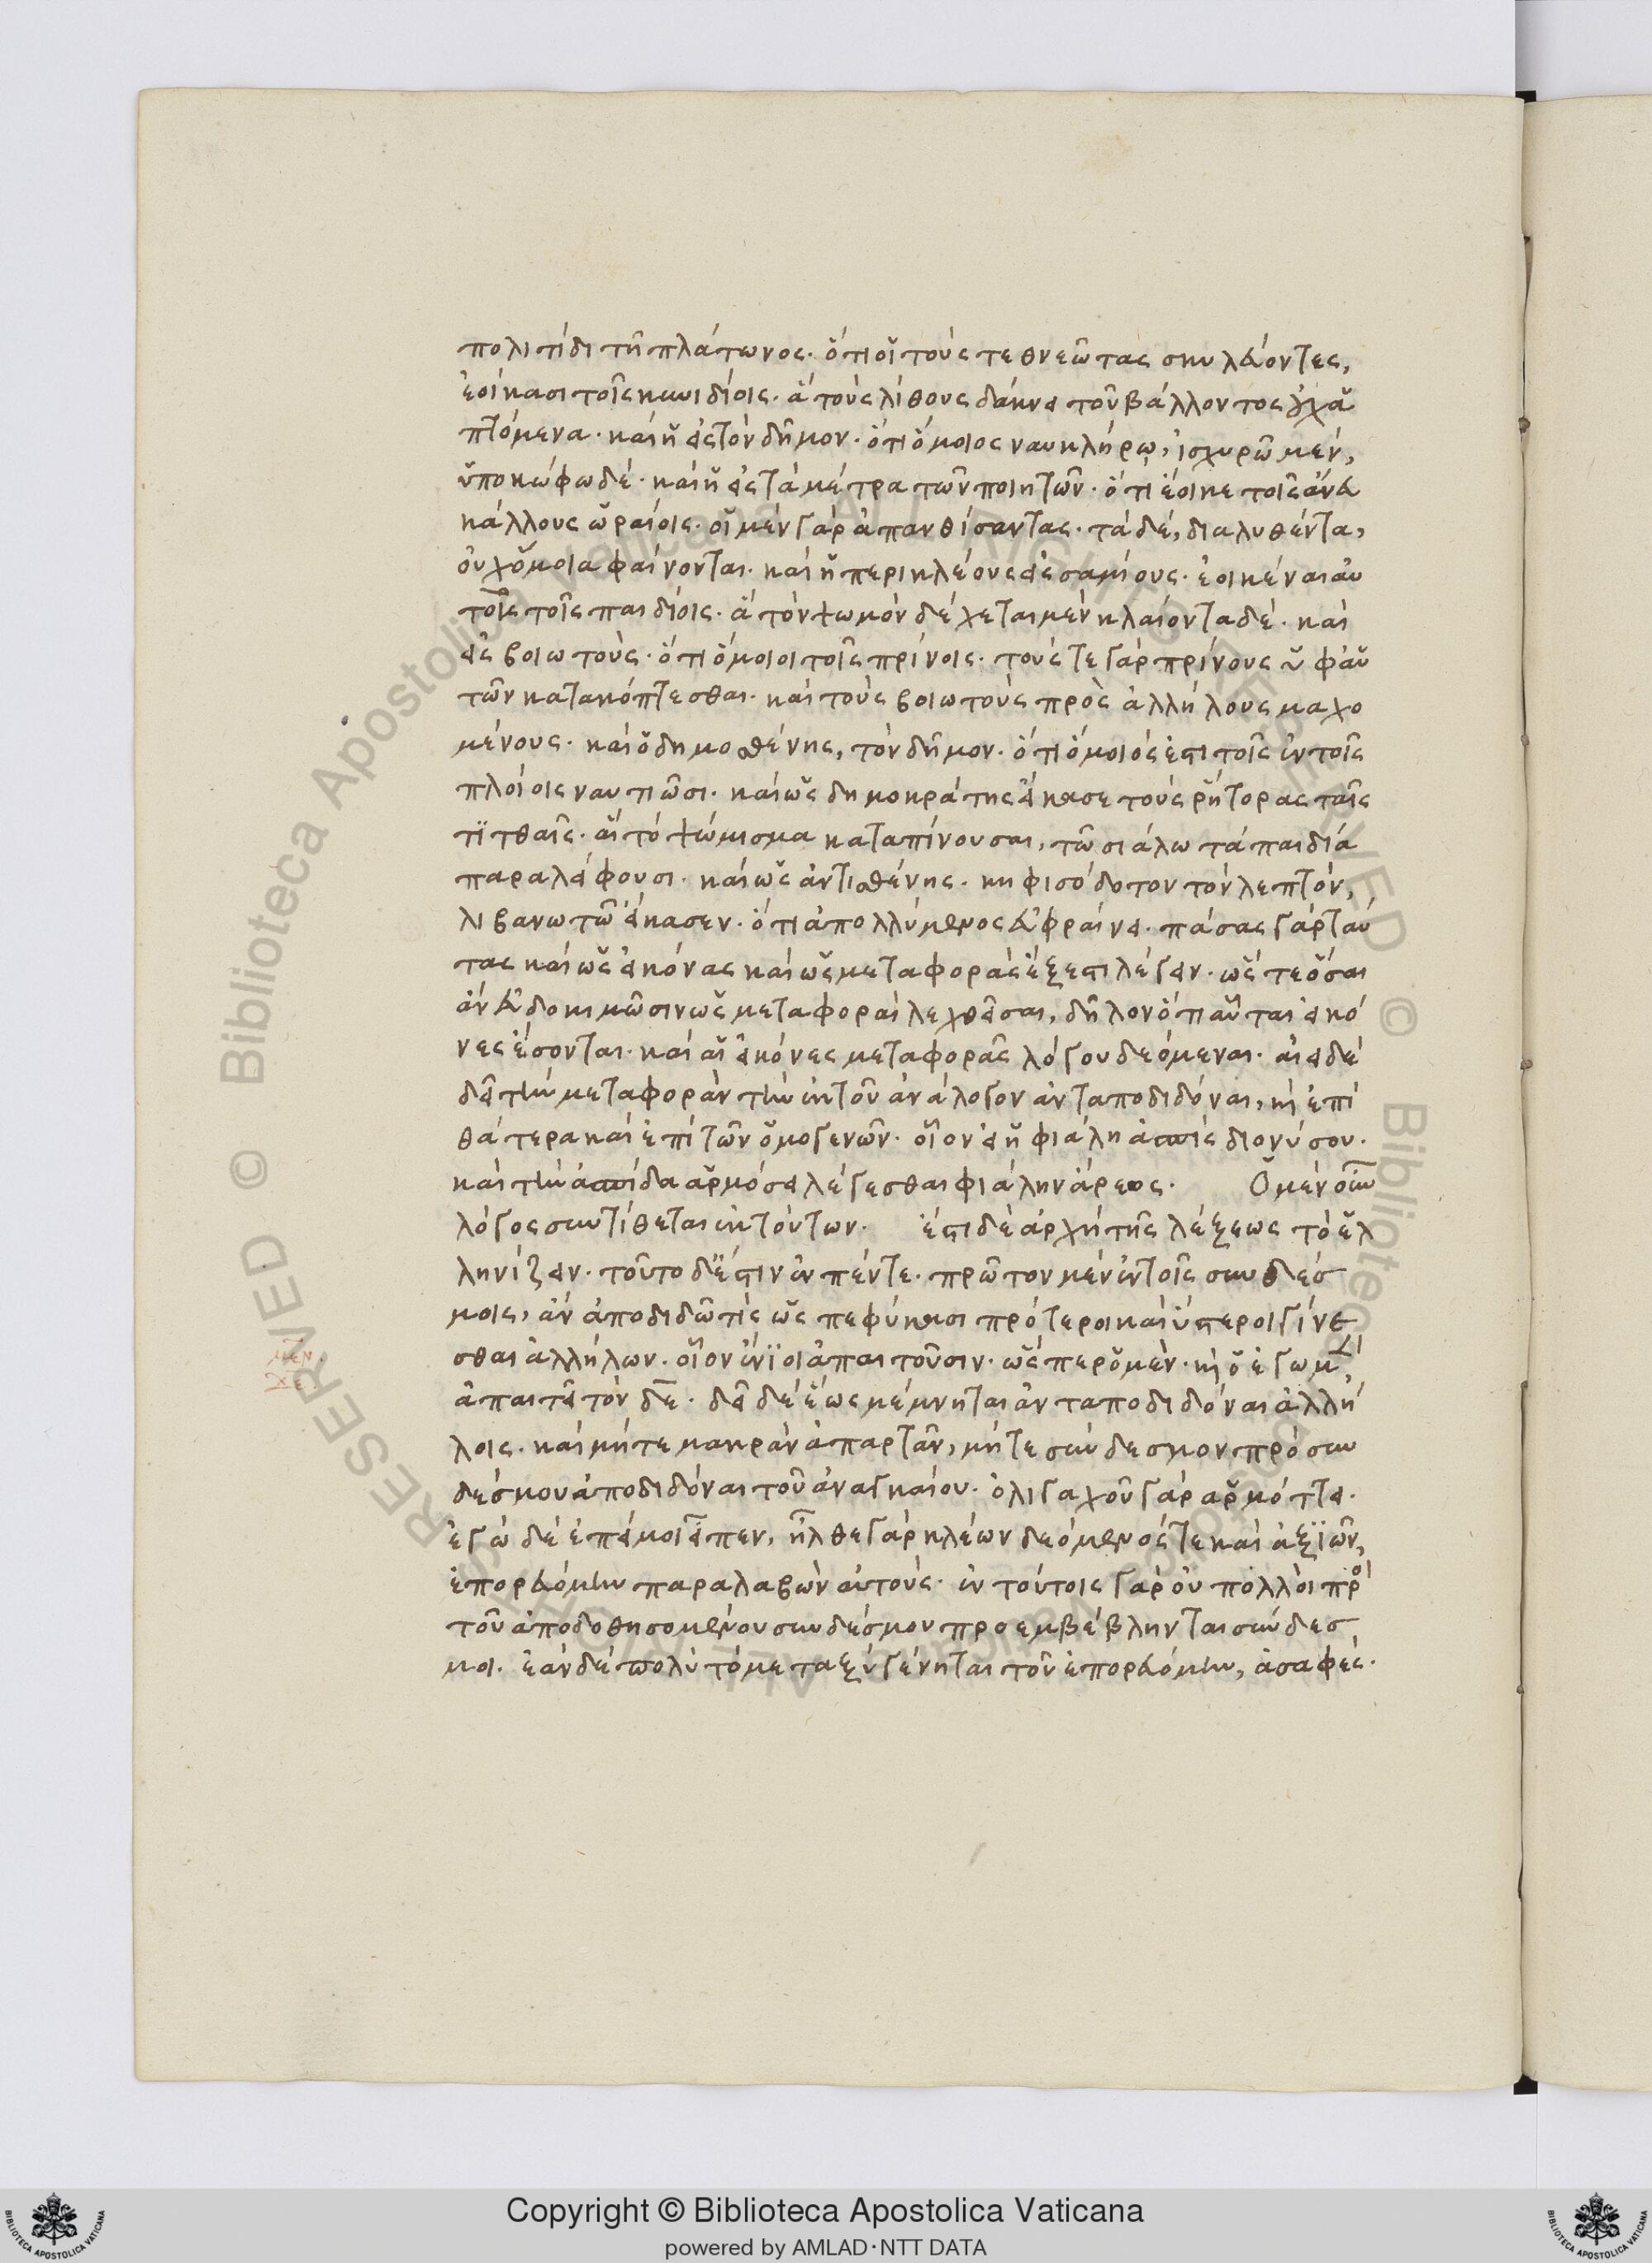 πολιτείδι τῆ πλάτωνος· ὅτι οἱ τοὺς τεθνεῶτας σκυλεύοντες,
ἐοίκασι τοῖς κυνιδίοις· ἃ τοὺς λίθους δάκνει τοῦ βάλλοντος οὐχ ἁ
πτόμενα· καὶ ἡ εἰς τὸν δῆμον· ὅτι ὅμοιος ναυκλήρῳ, ἰσχυρῶ μὲν,
ὑποκώφω δέ· καὶ ἡ εἰς τὰ μέτρα τῶν ποιητῶν· ὅτι ἔοικε τοῖς ἄνευ
κάλλους ὡραίοις· οἱ μὲν γὰρ ἀπανθίσαντας· τὰ δέ, διαλυθέντα,
οὐχ ὅμοια φαίνονται· καὶ ἡ περικλέους εἰς σαμίους· ἐοικέναι αὐ
τοῖς τοῖς παιδίοις· ἃ τὸν ψωμὸν δέχεται μὲν κλαίοντα δέ· καὶ
εἰς βοιωτοὺς· ὅτι ὅμοιοι τοῖς πρίνοις· τούς τε γὰρ πρίνους ὑφ' αὑ
τῶν κατακόπτεσθαι· καὶ τοὺς βοιωτοὺς πρὸς ἀλλήλους μαχο
μένους· καὶ ὁ δημοσθένης, τὸν δῆμον· ὅτι ὅμοιός ἐστι τοῖς ἐν τοῖς
πλοίοις ναυτιῶσι· καὶ ὡς δημοκράτης εἴκασε τοὺς ῥήτορας ταῖς
τίτθαις· αἳ τὸ ψώμισμα καταπίνουσαι, τῶ σιάλω τὰ παιδία
παραλείφουσι· καὶ ὡς ἀντισθένης· κηφισόδοτον τὸν λεπτόν,
λιβανωτῶ εἴκασεν· ὅτι ἀπολλύμενος εὐφραίνει· πάσας γὰρ ταύ
τας καὶ ὡς εἰκόνας καὶ ὡς μεταφορὰς ἔξεστι λέγειν· ὥς τε ὅσαι
ἂν εὐδοκιμῶσιν ὡς μεταφοραὶ λεχθεῖσαι, δῆλον ὅτι αὗται εἰκό
νες ἔσονται· καὶ αἱ εἰκόνες μεταφορᾶς λόγου δεόμεναι· αἰεὶ δὲ
δεῖ τὴν μεταφορὰν τὴν ἐκ τοῦ ἀνάλογον ἀνταποδιδόναι, κὴ ἐπὶ
θάτερα καὶ ἐπὶ τῶν ὁμογενῶν· οἷον εἰ ἡ φιάλη ἀσπὶς διονύσου·
καὶ τὴν ἀσπίδα ἁρμόσει λέγεσθαι φιάλην ἄρεος· Ὁ μὲν οὖν
λόγος συντίθεται ἐκ τούτων· ἔστι δὲ ἀρχὴ τῆς λέξεως τὸ ἑλ
ληνίζειν· τοῦτο δ' ἐστιν ἐν πέντε· πρῶτον μὲν ἐν τοῖς συνδέσ
μοις, ἂν ἀποδιδῶ τις ὡς πεφύκασι πρότεροι καὶ ὕστεροι γίνε
σθαι ἀλλήλων· οἷον ἔνϊοι ἀπαιτοῦσιν· ὥς περ ὁ μὲν· κὴ ὁ ἐγὼ μ
ἀπαιτεῖ τὸν δὲ· δεῖ δὲ ἕως μέμνηται ἀνταποδιδόναι ἀλλή
λοις· καὶ μήτε μακρὰν ἀπαρτᾶν, μήτε σύνδεσμον πρὸ συν
δέσμου ἀποδιδόναι τοῦ ἀναγκαίου· ὀλιγαχοῦ γὰρ ἁρμόττει·
ἐγὼ δὲ ἐπεί μοι εἶπεν, ἦλθε γὰρ κλέων δεόμενός τε καὶ ἀξϊῶν,
ἐπορευόμην παραλαβὼν αὐτούς· ἐν τούτοις γὰρ οὐ πολλοὶ πρὸ
τοῦ ἀποδοθησομένου συνδέσμου προεμβέβληνται σύνδεσ
μοι· ἐὰν δὲ πολὺ τὸ μεταξὺ γένηται τοῦ ἐπορευόμην, ἀσαφές·
Copyright © Biblioteca Apostolica Vaticana
powered by AMLAD·NTT DATA